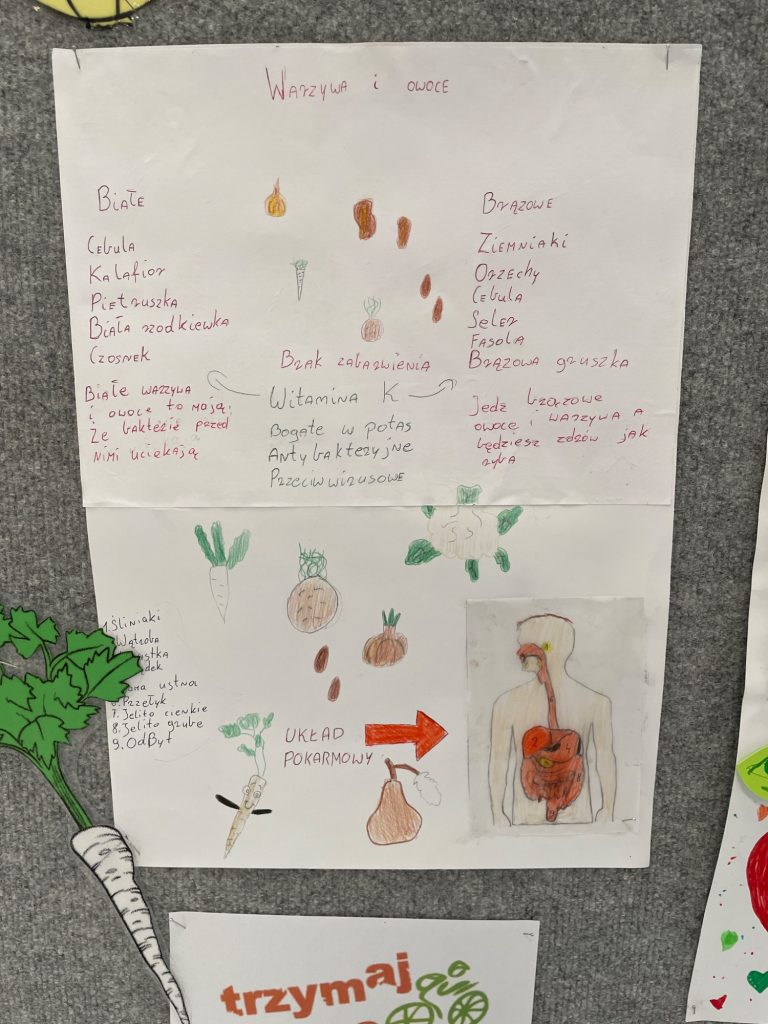 Warzywa i owoce
Białe
Cebula
Kalafior
Pietruszka
Biała rzodkiewka
Czosnek
Białe warzywa
i owoce to mają,
Że bakterie przed
nimi uciekają
Brak zabarwienia
Witamina K
Bogate w potas
Antybakteryjne
Przeciwwirusowe
Brązowe
Ziemniaki
Orzechy
Cebula
Seler
Fasola
Brązowa gruszka
Jedz brązowe
owoce i warzywa a
będziesz zdrów jak
ryba
1.Śliniaki
Wątroba
ustna
Przełyk
7. Jelito cienkie
8. Jelito grube
9. OdByt
UKŁAD
POKARMOWY
trzymaj